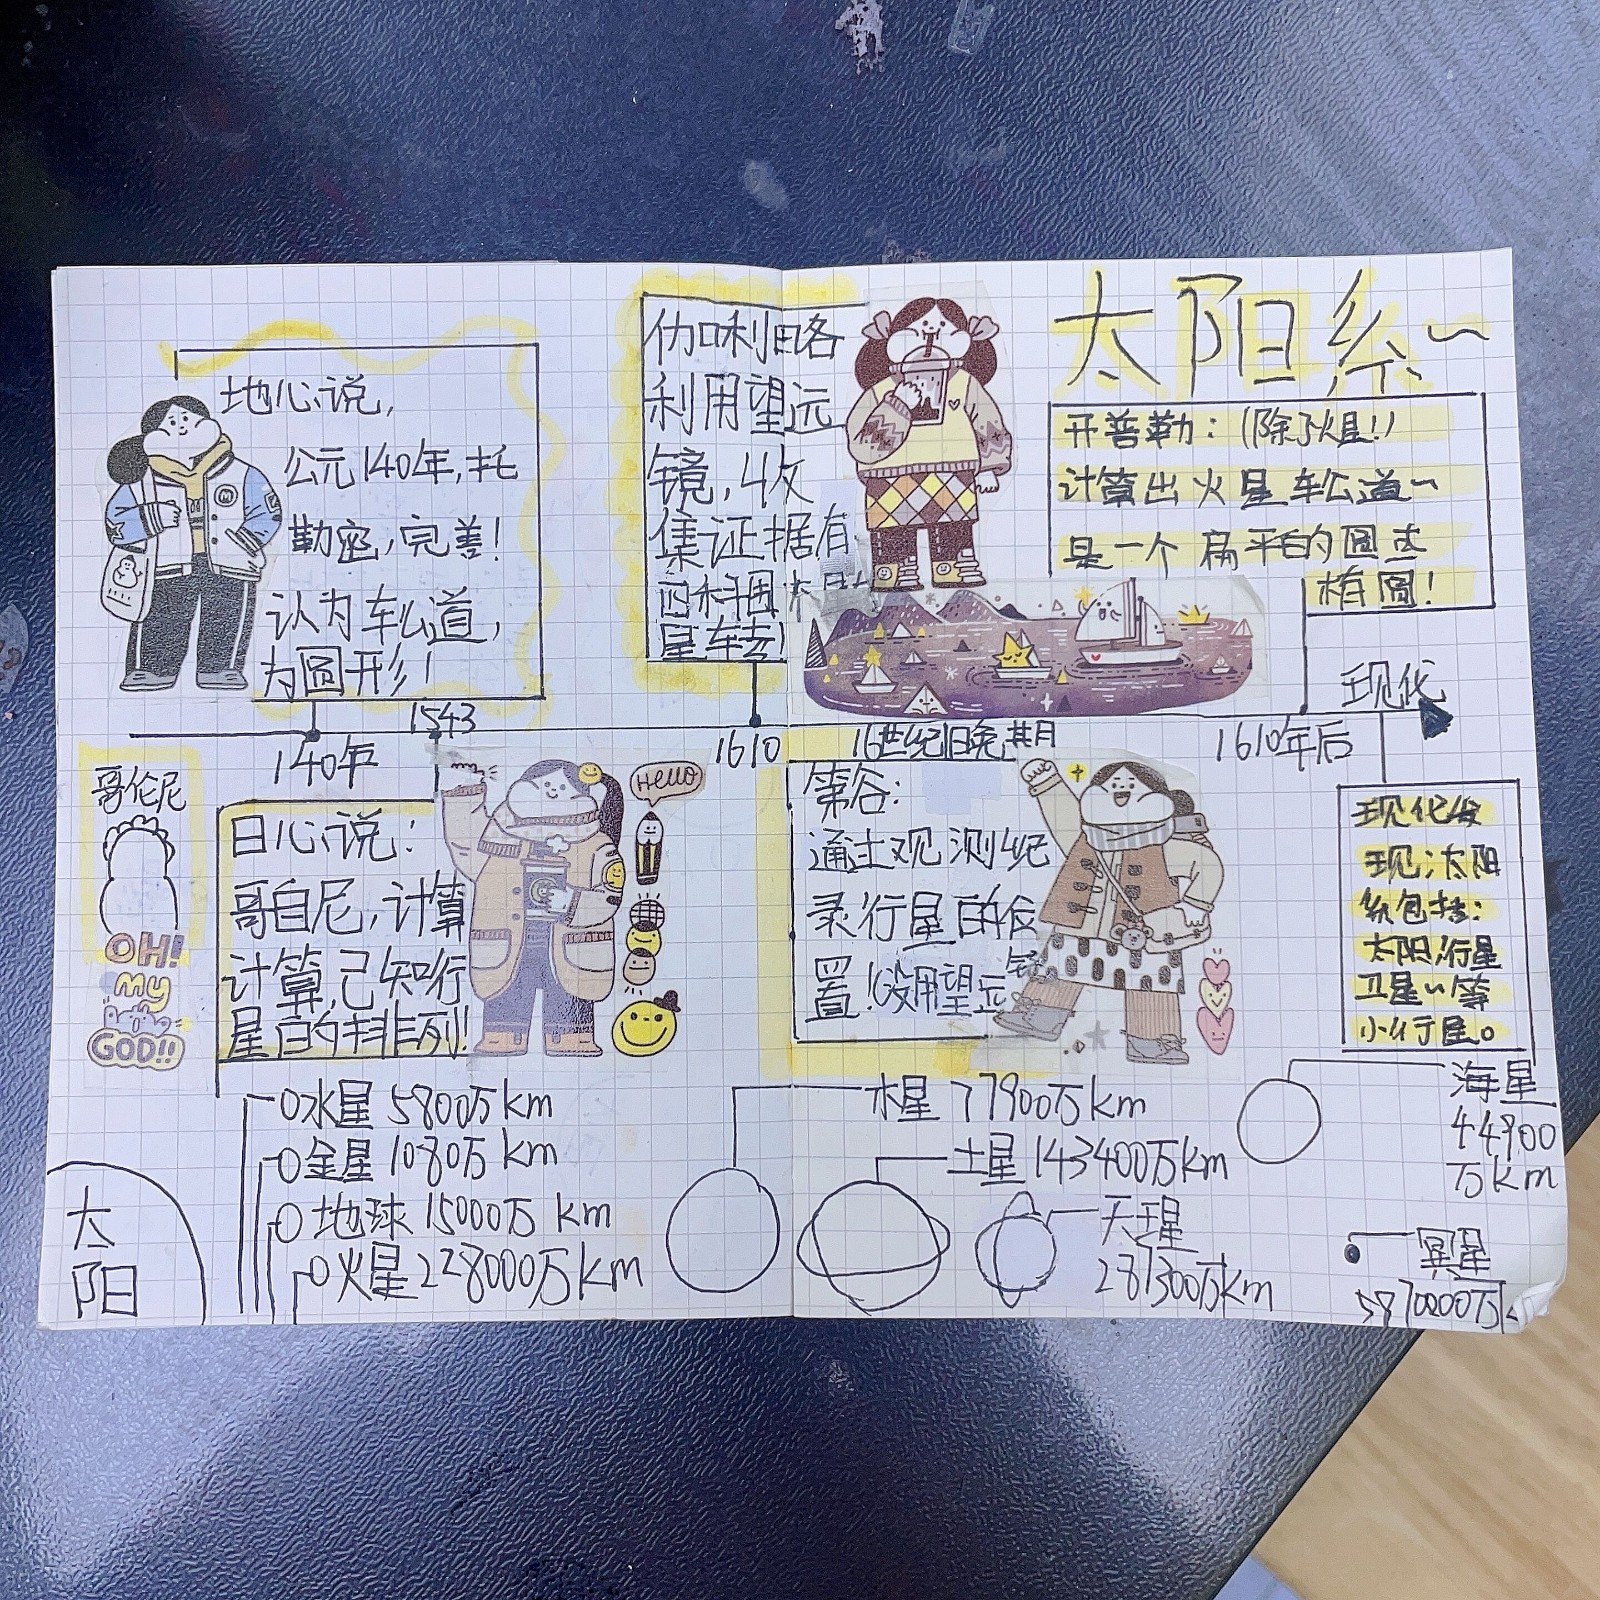 太阳系~
地心说,
公元140年,托
勒密,完善!
认为车公道,
为圆形!
伽利略
利用望远
镜,收
集证据有
四科围
星车去!
开普勒:(除了火星!)
计算出火星车公道~
是一个扁平的圆古
椭圆!
现代
140年
1543
1610
16世纪旧晚期
1610年后
哥伦尼
OH!
my
GOD!!
日心说:
哥白尼,计算
计算,己知行
星白的排列!
HELLO
第谷:
通过观测纪
录行星的位
置!(没用望远镜
现代发
现:太阳
系包括:
太阳,行星
卫星~等
小行星。
太
阳
水星 5800万km
金星 1080万km
地球 15000万km
火星 228000万km
木星 77900万km
土星 143400万km
天王星
287300万km
海星
44900
万km
冥星
5870000万k